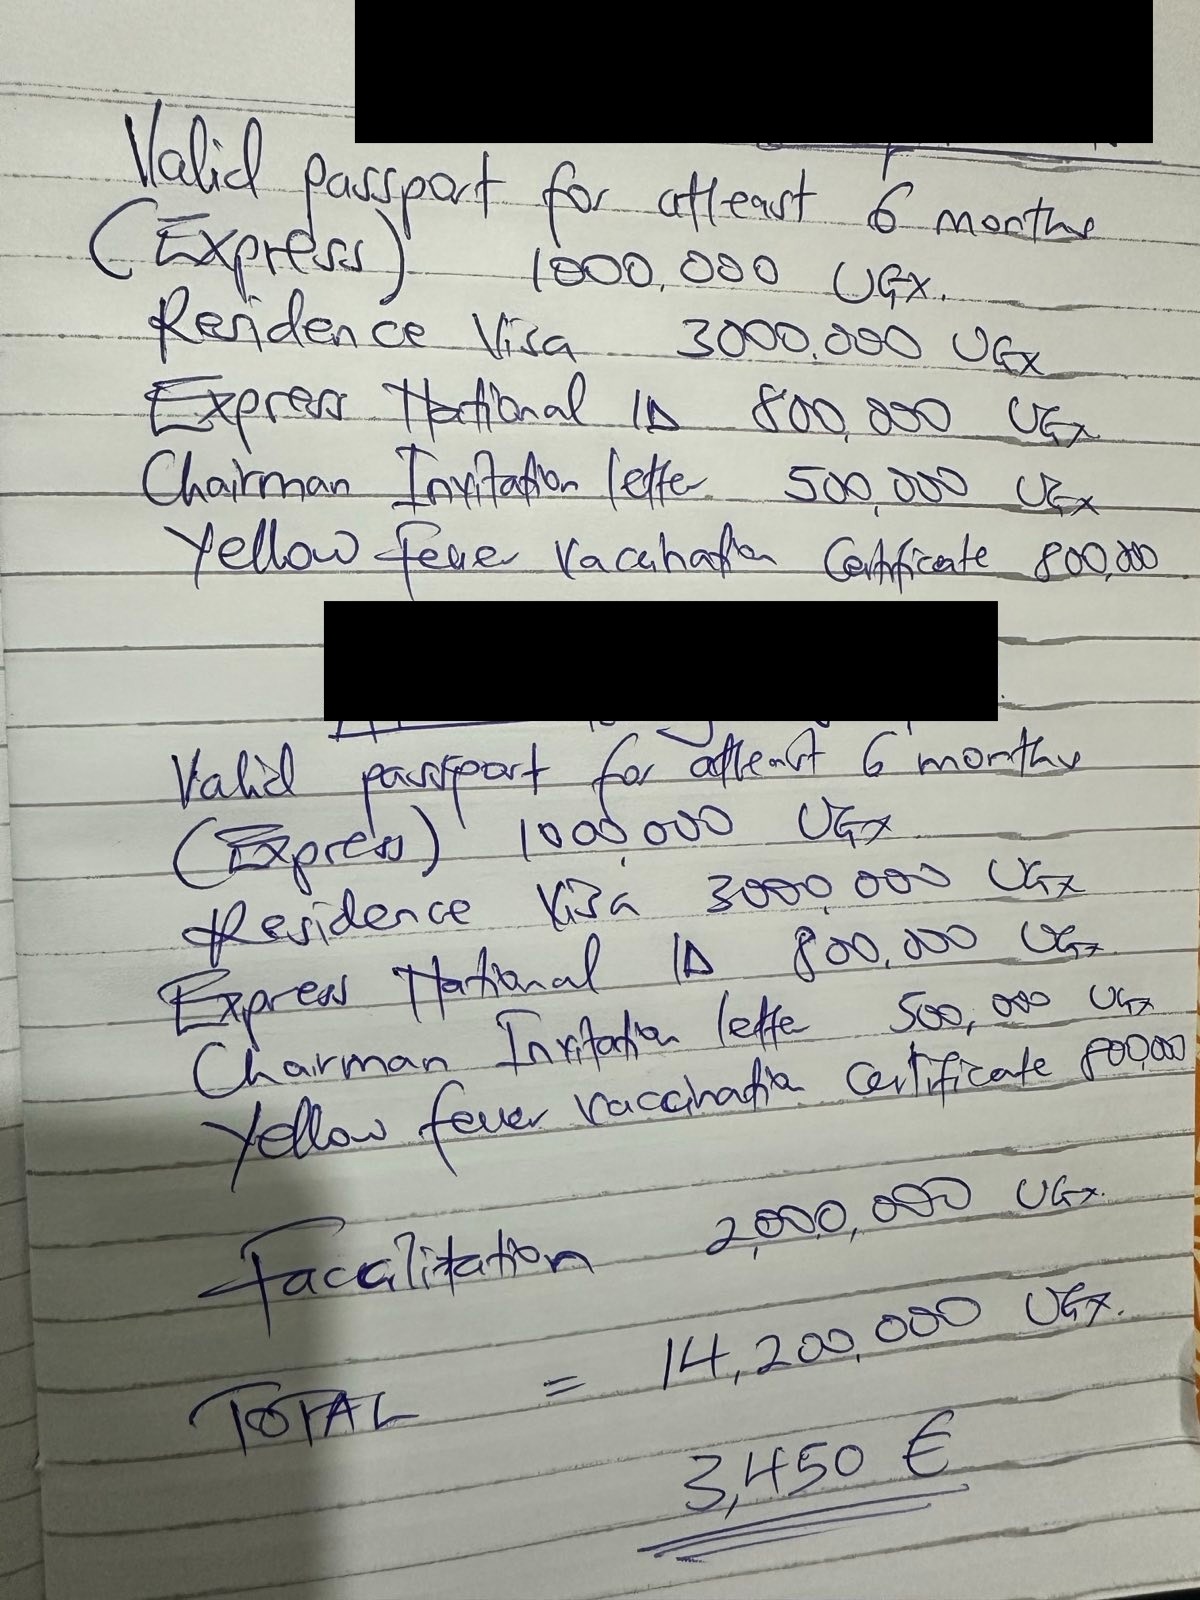 Valid passport for atleast 6 months
(Express) 1000,000 UGX.
Residence Visa 3000,000 UGX
Express National ID 800,000 UGX
Chairman Invitation letter 500,000 UGX
Yellow fever vaccination Certificate 800,000
Valid passport for atleast 6 months
(Express) 1000,000 UGX
Residence Visa 3000,000 UGX
Express National ID 800,000 UGX
Chairman Invitation letter 500,000 UGX
Yellow fever vaccination Certificate 800,000
Faccilitation 2,000,000 UGX.
TOTAL = 14,200,000 UGX.
3,450 €